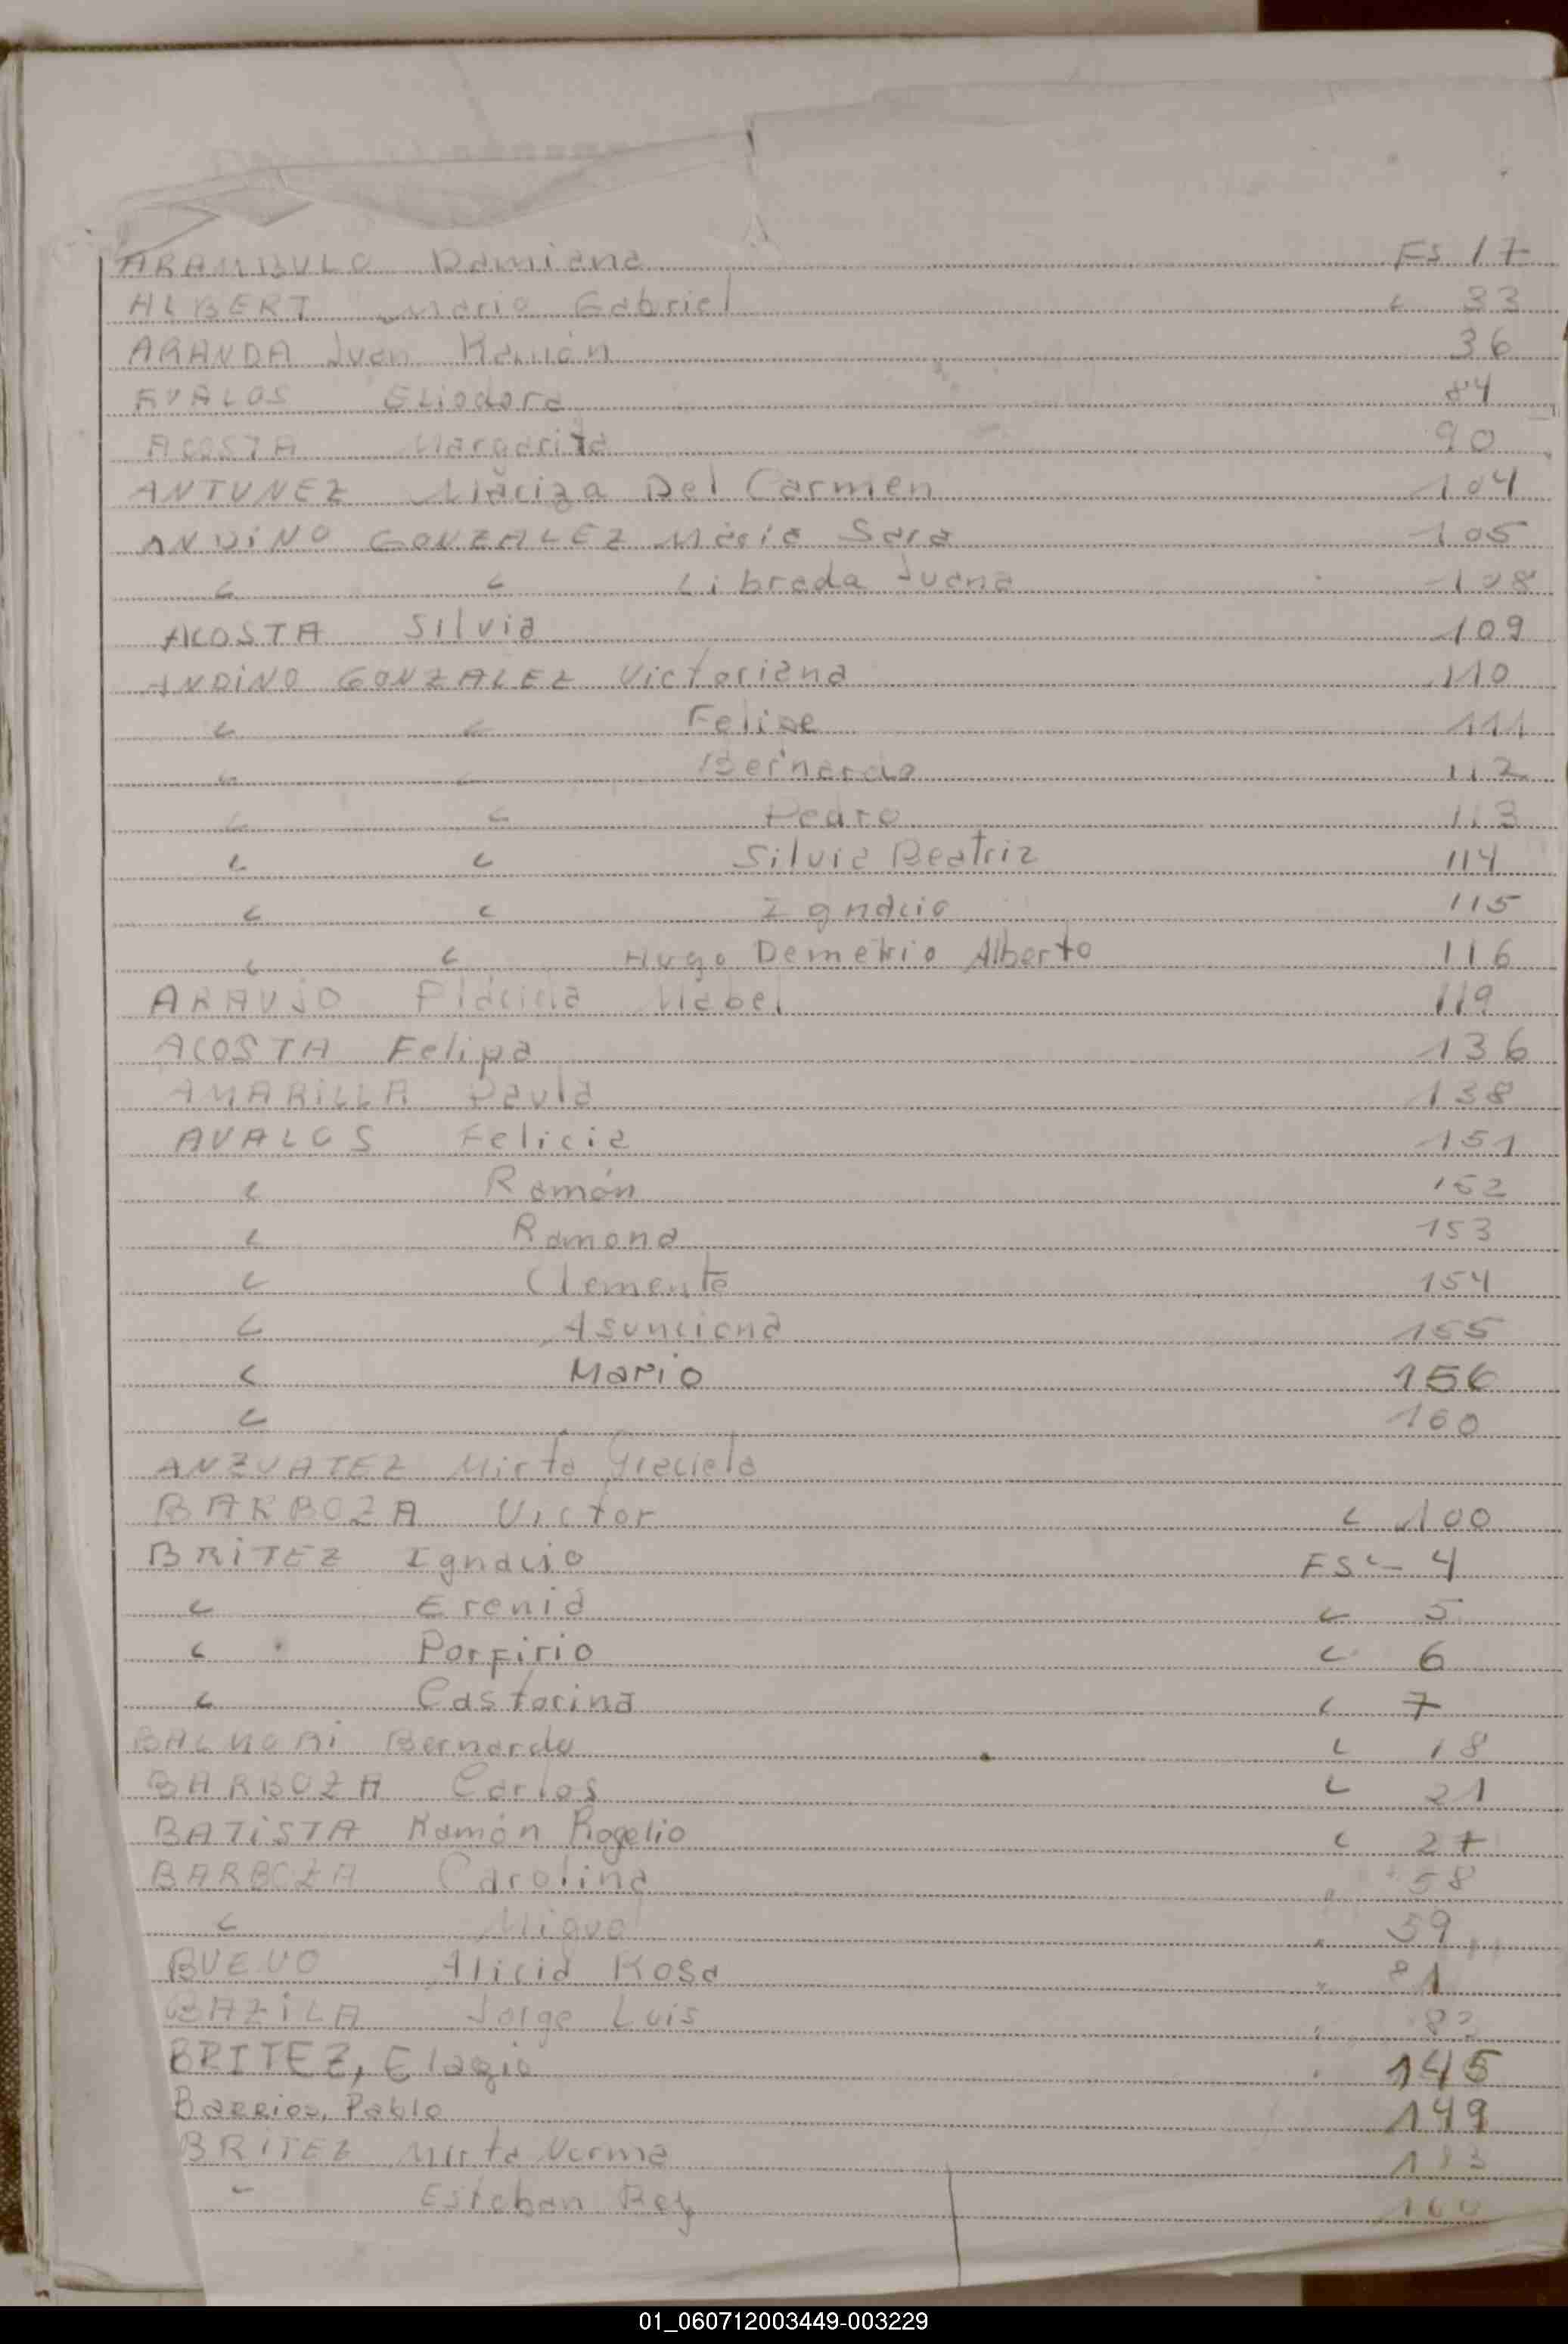 ARAMBULO Damiana Fs 17
ALBERT Mario Gabriel " 33
ARANDA Juan Ramón 36
AVALOS Eliodora 84
ACOSTA Margarita 90
ANTUNEZ Mariza Del Carmen 104
ANDINO GONZALEZ María Sara 105
" " Librada Juana 108
ACOSTA Silvia 109
ANDINO GONZALEZ Victoriana 110
" " Felipe 111
" " Bernardo 112
" " Pedro 113
" " Silvia Beatriz 114
" " Ignacio 115
" " Hugo Demetrio Alberto 116
ARAUJO Placida Mabel 119
ACOSTA Felipa 136
AMARILLA Paula 138
AVALOS Felicia 151
" Ramón 152
" Ramona 153
" Clemente 154
" Asunciona 155
" Mario 156
" 160
ANZUATEZ Mirta Graciela
BARBOZA Victor " 100
BRITEZ Ignacio FS - 4
" Erenia " 5
" Porfirio " 6
" Castorina " 7
BALMORI Bernardo " 18
BARBOZA Carlos " 21
BATISTA Ramón Rogelio " 27
BARBOZA Carolina " 58
" Miguel " 59
BUENO Alicia Rosa " 81
BAZILA Jorge Luis " 82
BRITEZ, Eladio " 145
Barrios, Pablo 149
BRITEZ Mirta Norma
" Esteban Rey
01_060712003449-003229